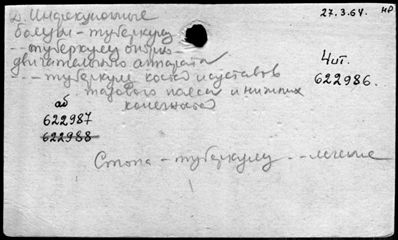 Д. Инфекционные
27.3.64. нр
болезни - туберкулез
-- туберкулез опорно-
двигательного аппарата
4 шт.
-- туберкулез костей и суставов
622986.
тазового пояса и нижних
конечностей
аб
622987
622988
Стопа - туберкулез -- лечение